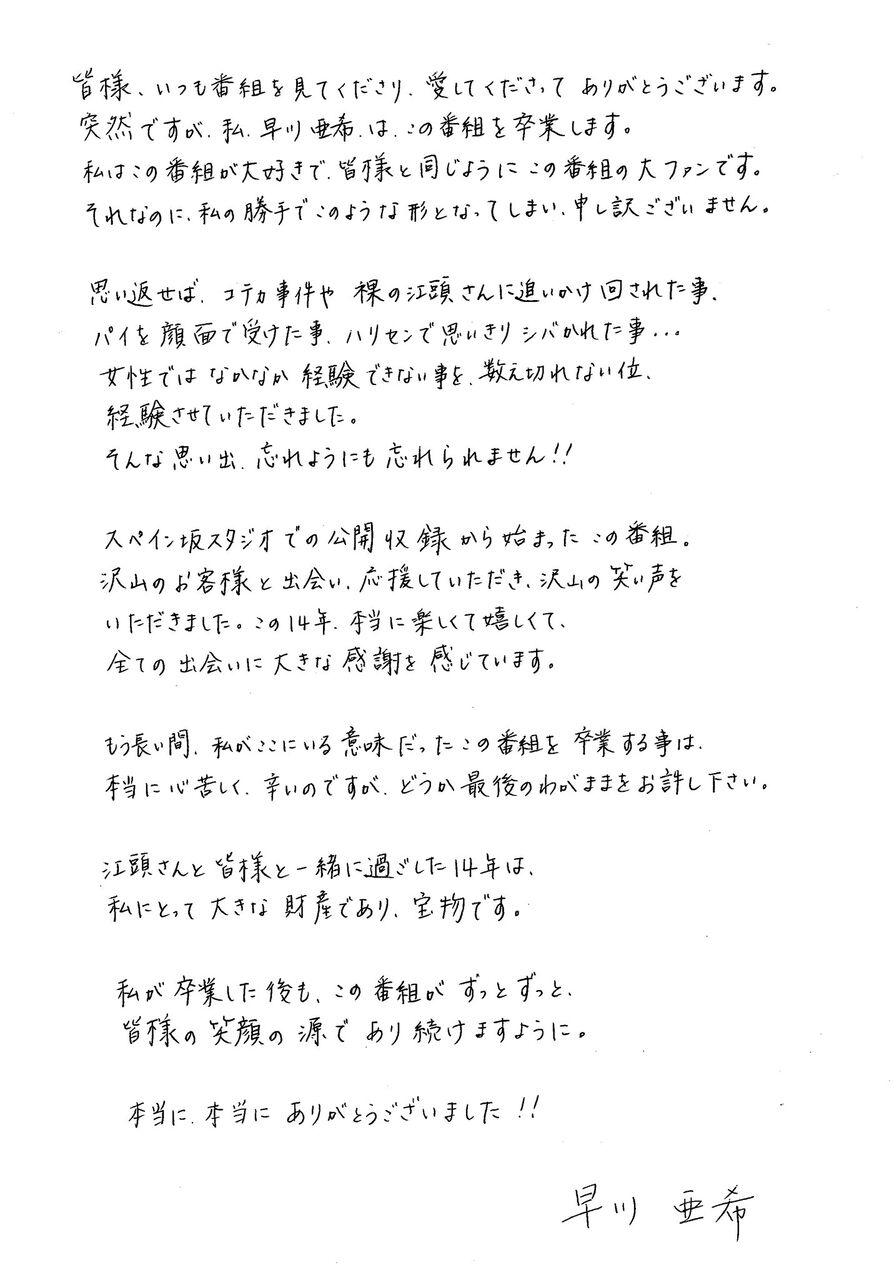 皆様、いつも番組を見てくださり、愛してくださって ありがとうございます。
突然ですが、私、早川亜希、は、この番組を卒業します。
私はこの番組が大好きで、皆様と同じように この番組の大ファンです。
それなのに、私の勝手でこのような形となってしまい、申し訳ございません。
思い返せば、コテカ事件や 裸の江頭さんに追いかけ回された事、
パイを顔面で受けた事、ハリセンで思いきり シバかれた事...
女性では なかなか 経験できない事を、数え切れない位、
経験させていただきました。
そんな思い出、忘れようにも 忘れられません!!
スペイン坂スタジオでの公開収録から始まったこの番組。
沢山のお客様と出会い、応援していただき、沢山の笑い声を
いただきました。この14年、本当に楽しくて嬉しくて、
全ての出会いに大きな感謝を感じています。
もう長い間、私がここにいる意味だったこの番組を 卒業する事は、
本当に心苦しく、辛いのですが、どうか最後のわがままをお許し下さい。
江頭さんと皆様と一緒に過ごした14年は、
私にとって大きな財産であり、宝物です。
私が卒業した後も、この番組が ずっとずっと、
皆様の笑顔の源で あり続けますように。
本当に、本当に ありがとうございました!!
早川 亜希